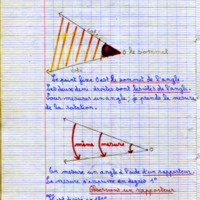 côté
O le sommet
côté
Le point fixe O est le sommet de l'angle.
Les deux demi-droites sont les côtés de l'angle.
Pour mesurer un angle, je prends la mesure
de la rotation.
même mesure
O
On mesure un angle à l'aide d'un rapporteur.
La mesure s'exprime en degrés 1°
Observons un rapporteur